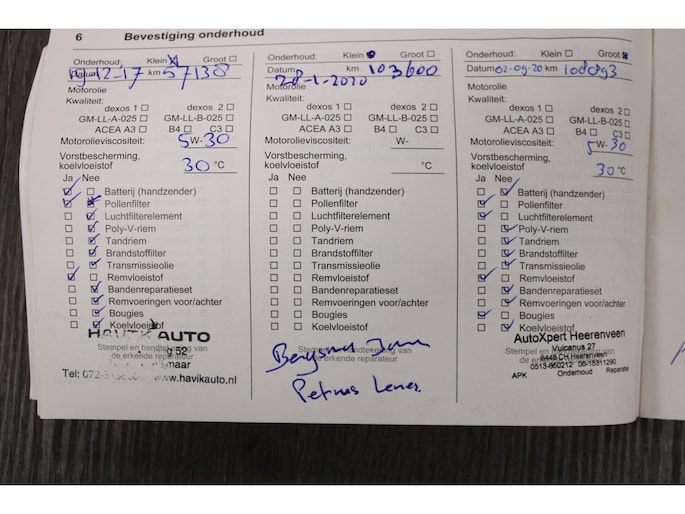 6 Bevestiging onderhoud
Onderhoud: Klein Groot
Datum 12-17 km 57138
Motorolie
Kwaliteit:
dexos 1 dexos 2
GM-LL-A-025 GM-LL-B-025
ACEA A3 B4 C3
Motorolieviscositeit: 5W-30
Vorstbescherming,
koelvloeistof 30 °C
Ja Nee
Batterij (handzender)
Pollenfilter
Luchtfilterelement
Poly-V-riem
Tandriem
Brandstoffilter
Transmissieolie
Remvloeistof
Bandenreparatieset
Remvoeringen voor/achter
Bougies
Koelvloeistof
HAVIK AUTO
Stempel en handtekening van
de erkende reparateur
52
maar
Tel: 072- www.havikauto.nl
Onderhoud: Klein Groot
Datum 28-1-2020 km 103600
Motorolie
Kwaliteit:
dexos 1 dexos 2
GM-LL-A-025 GM-LL-B-025
ACEA A3 B4 C3
Motorolieviscositeit: W-
Vorstbescherming,
koelvloeistof °C
Ja Nee
Batterij (handzender)
Pollenfilter
Luchtfilterelement
Poly-V-riem
Tandriem
Brandstoffilter
Transmissieolie
Remvloeistof
Bandenreparatieset
Remvoeringen voor/achter
Bougies
Koelvloeistof
Stempel en handtekening van
de erkende reparateur
Petrus
Onderhoud: Klein Groot
Datum 02-09-20 km
Motorolie
Kwaliteit:
dexos 1 dexos 2
GM-LL-A-025 GM-LL-B-025
ACEA A3 B4 C3
Motorolieviscositeit: 5W-30
Vorstbescherming,
koelvloeistof 30 °C
Ja Nee
Batterij (handzender)
Pollenfilter
Luchtfilterelement
Poly-V-riem
Tandriem
Brandstoffilter
Transmissieolie
Remvloeistof
Bandenreparatieset
Remvoeringen voor/achter
Bougies
Koelvloeistof
AutoXpert Heerenveen
Vulcanus 27
Stempel en handtekening van
8448 CH Heerenveen
0513-650212 06-15311290
APK Onderhoud Reparatie